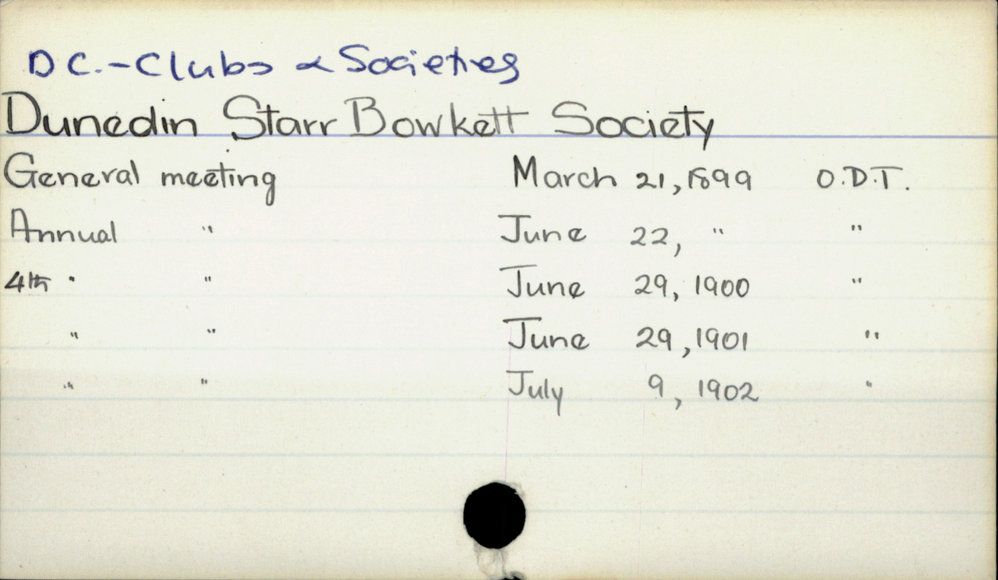 D C. - Clubs & Societies
Dunedin Starr Bowkett Society
General meeting March 21, 1899 O.D.T.
Annual " June 22, " "
4th " " June 29, 1900 "
" " June 29, 1901 "
" " July 9, 1902 "